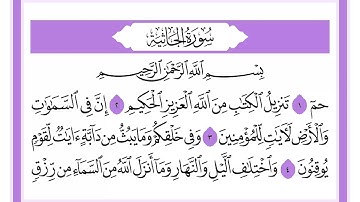 سُورَةُ الجَاثِيَةِ
بِسْمِ اللَّهِ الرَّحْمَٰنِ الرَّحِيمِ
حمٓ ١ تَنزِيلُ الْكِتَابِ مِنَ اللَّهِ الْعَزِيزِ الْحَكِيمِ ٢ إِنَّ فِي السَّمَاوَاتِ
وَالْأَرْضِ لَآيَاتٍ لِّلْمُؤْمِنِينَ ٣ وَفِي خَلْقِكُمْ وَمَا يَبُثُّ مِن دَابَّةٍ آيَاتٌ لِّقَوْمٍ
يُوقِنُونَ ٤ وَاخْتِلَافِ اللَّيْلِ وَالنَّهَارِ وَمَا أَنزَلَ اللَّهُ مِنَ السَّمَاءِ مِن رِّزْقٍ